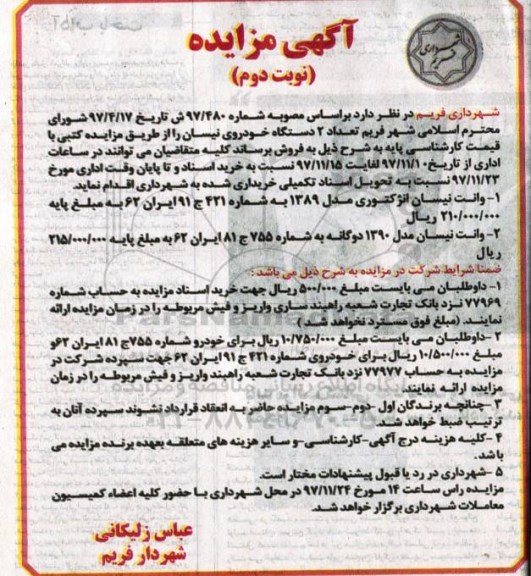 آگهی مزایده
(نوبت دوم)
شهرداری فریم در نظر دارد براساس مصوبه شماره ۹۷/۴۸۰ ش تاریخ ۹۷/۴/۱۷ شورای
محترم اسلامی شهر فریم تعداد ۲ دستگاه خودروی نیسان را از طریق مزایده کتبی با
قیمت کارشناسی پایه به شرح ذیل به فروش برساند کلیه متقاضیان می توانند در ساعات
اداری از تاریخ ۹۷/۱۱/۱۰ لغایت ۹۷/۱۱/۱۵ نسبت به خرید اسناد و تا پایان وقت اداری مورخ
۹۷/۱۱/۲۳ نسبت به تحویل اسناد تکمیلی خریداری شده به شهرداری اقدام نماید.
۱- وانت نیسان انژکتوری مدل ۱۳۸۹ به شماره ۴۲۱ ج ۹۱ ایران ۶۲ به مبلغ پایه
۲۱۰/۰۰۰/۰۰۰ ریال
۲- وانت نیسان مدل ۱۳۹۰ دوگانه به شماره ۷۵۵ ج ۸۱ ایران ۶۲ به مبلغ پایه ۲۱۵/۰۰۰/۰۰۰
ریال
ضمنا شرایط شرکت در مزایده به شرح ذیل می باشد :
۱- داوطلبان می بایست مبلغ ۵۰۰/۰۰۰ ریال جهت خرید اسناد مزایده به حساب شماره
۷۷۹۶۹ نزد بانک تجارت شعبه راهبند ساری واریز و فیش مربوطه را در زمان مزایده ارائه
نمایند. (مبلغ فوق مسترد نخواهد شد )
۲-داوطلبان می بایست مبلغ ۱۰/۷۵۰/۰۰۰ ریال برای خودرو شماره ۷۵۵ج ۸۱ ایران ۶۲و
مبلغ ۱۰/۵۰۰/۰۰۰ ریال برای خودروی شماره ۴۲۱ ج ۹۱ ایران ۶۲ جهت سپرده شرکت در
مزایده به حساب ۷۷۹۷۷ نزد بانک تجارت شعبه راهبند واریز و فیش مربوطه را در زمان
مزایده ارائه نمایند.
۳-چنانچه برندگان اول -دوم-سوم مزایده حاضر به انعقاد قرارداد نشوند سپرده آنان به
ترتیب ضبط خواهد شد.
۴-کلیه هزینه درج آگهی-کارشناسی-و سایر هزینه های متعلقه بعهده برنده مزایده می
باشد.
۵-شهرداری در رد یا قبول پیشنهادات مختار است.
مزایده راس ساعت ۱۴ مورخ ۹۷/۱۱/۲۴ در محل شهرداری با حضور کلیه اعضاء کمیسیون
معاملات شهرداری برگزار خواهد شد.
عباس زلیکانی
شهردار فریم